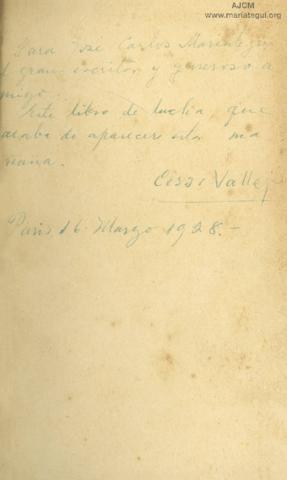 AJCM
www.mariategui.org
Para José Carlos Mariátegui
el gran escritor y generoso a
migo.
Este libro de lucha, que
acaba de aparecer esta ma
ñana.
César Vallejo
Paris 16 Marzo 1928.-